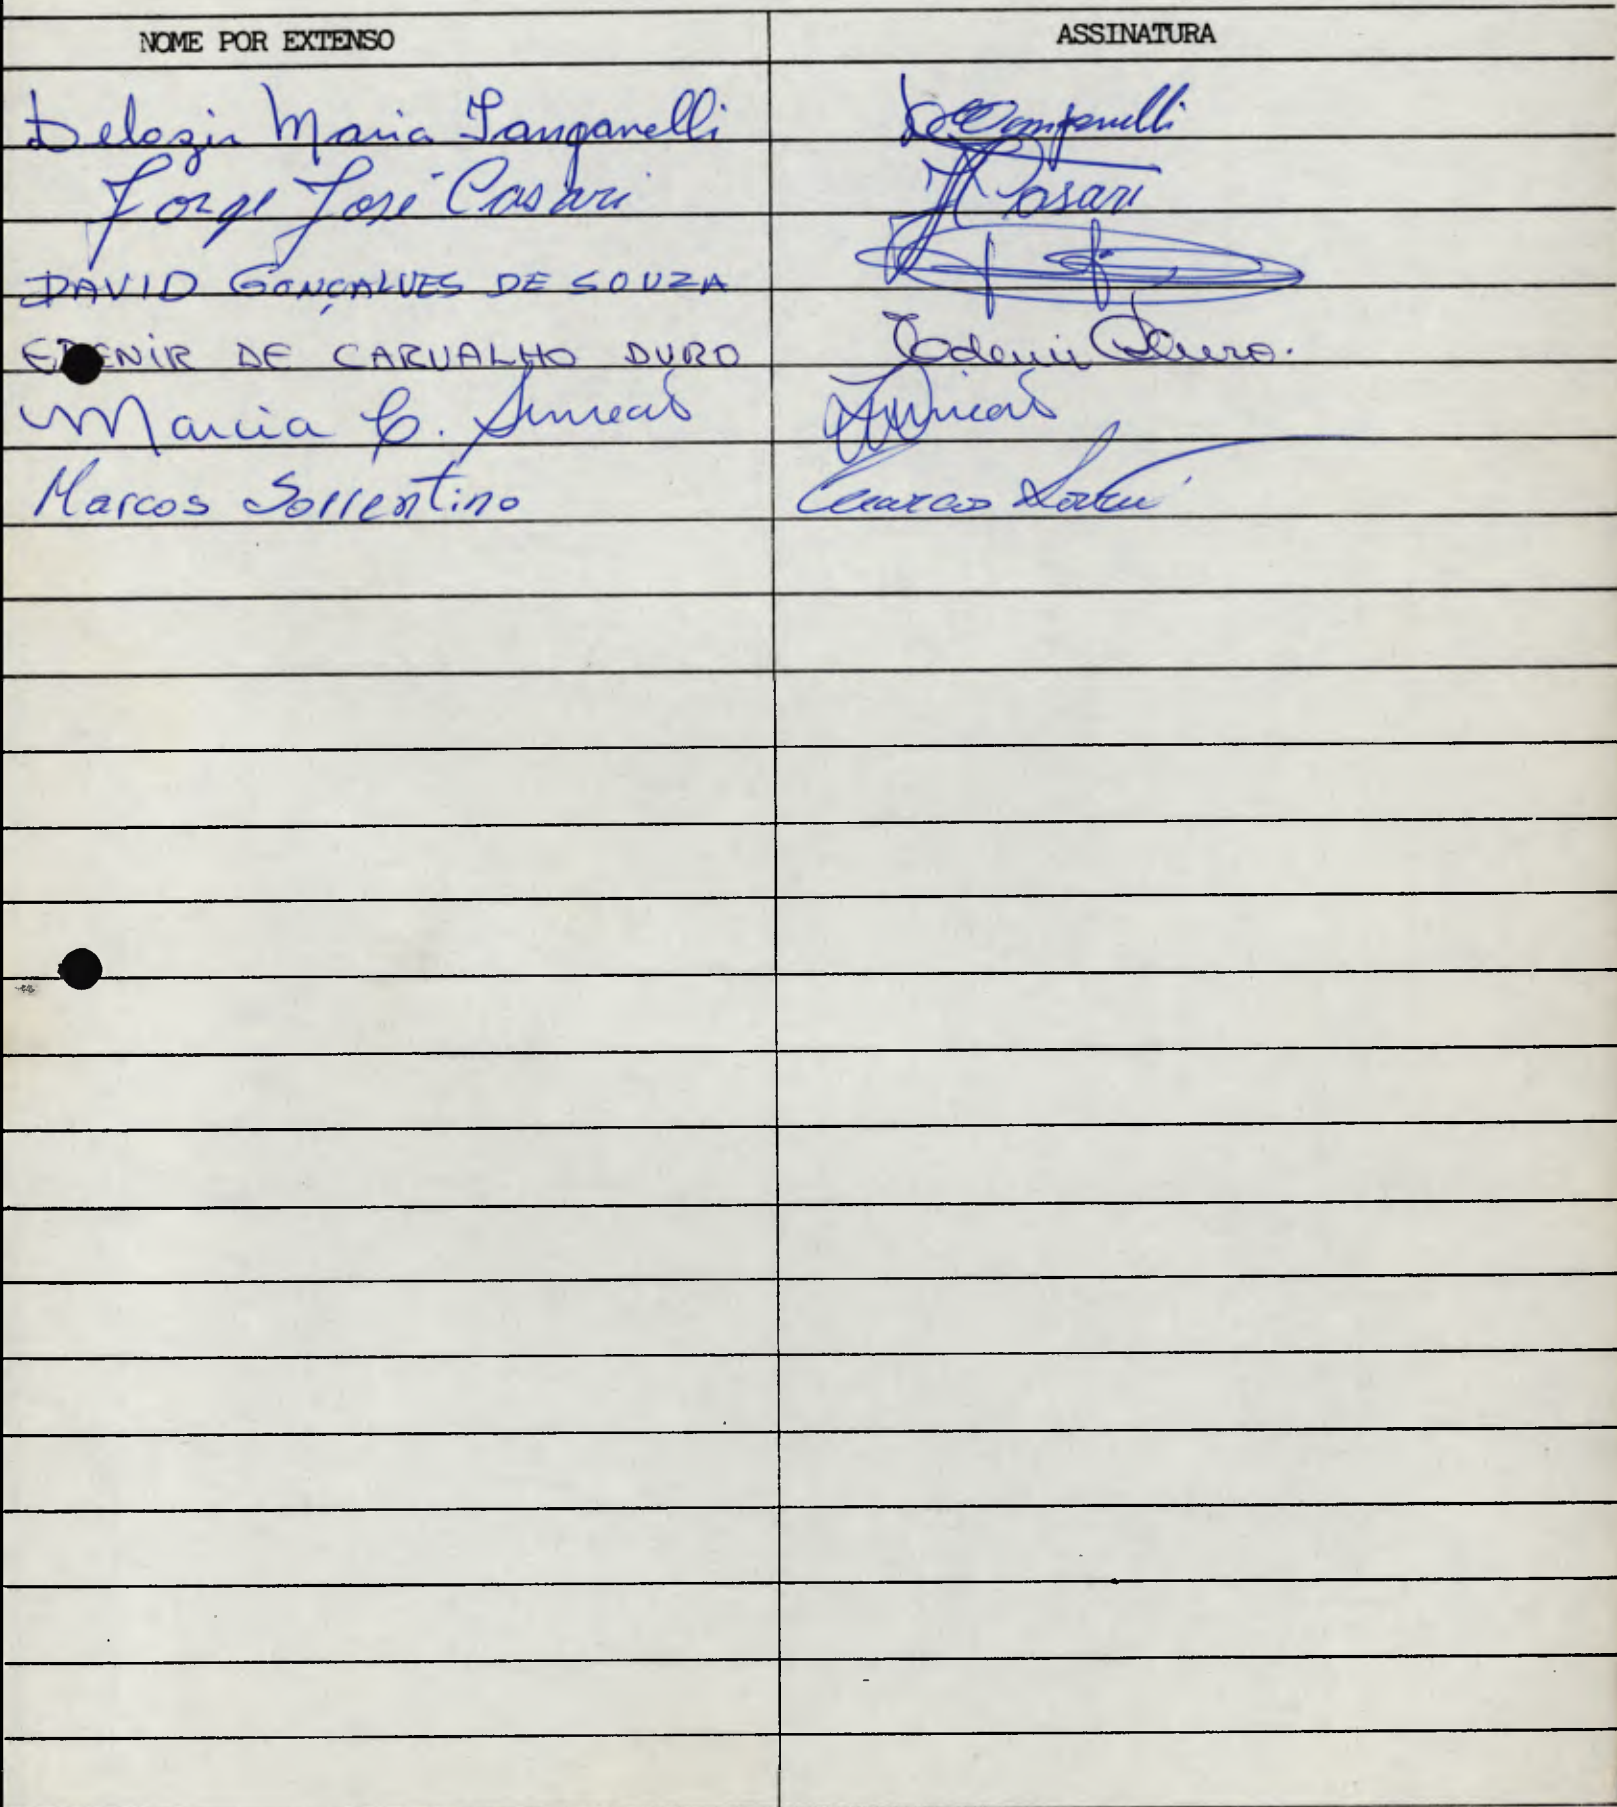 NOME POR EXTENSO ASSINATURA
Delozir Maria Tanganelli
Jorge José Casari JCasari
DAVID GONÇALVES DE SOUZA
EDENIR DE CARVALHO DURO Edenir Duro.
Marcia C.
Marcos Sorrentino Marcos